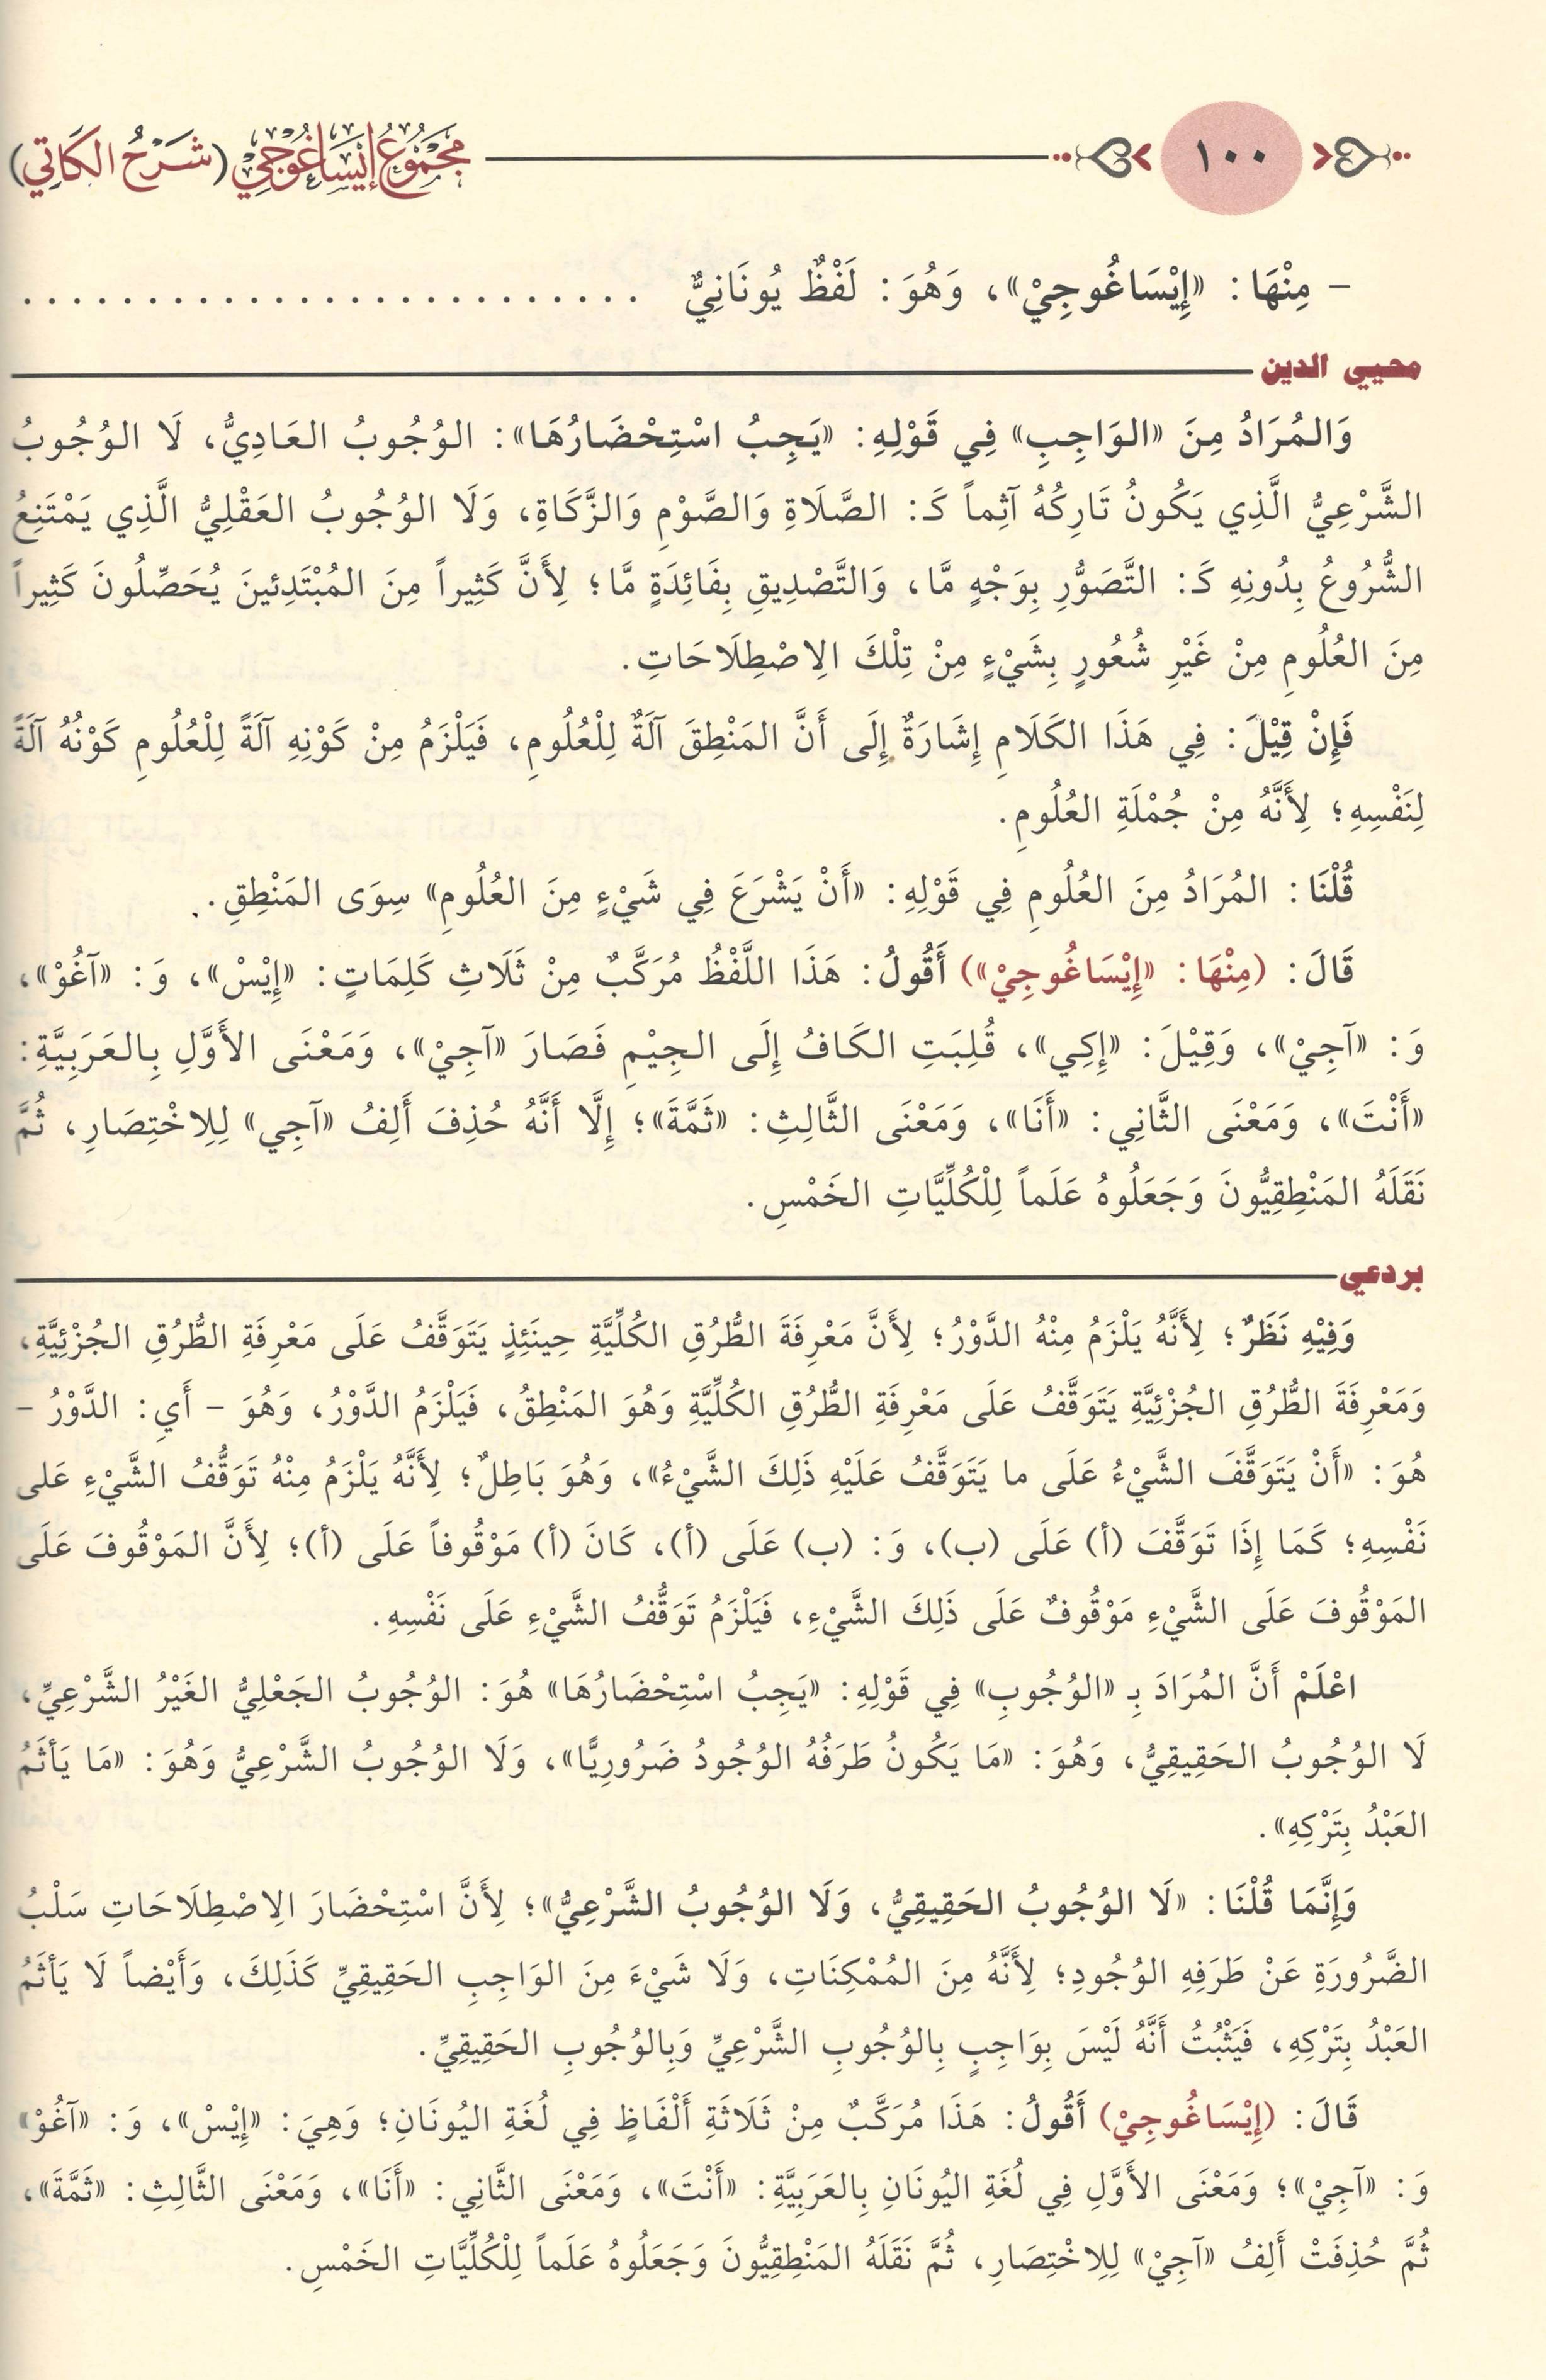 ١٠٠ مَجْمُوعُ إِيْسَاغُوجِيْ (شَرْحُ الكَاتِي)
– مِنْهَا: «إِيْسَاغُوجِيْ»، وَهُوَ: لَفْظٌ يُونَانِيٌّ . . . . . . . . . . . . . . . . . . . . . . . . .
محيي الدين
وَالمُرَادُ مِنَ «الوَاجِبِ» فِي قَوْلِهِ: «يَجِبُ اسْتِحْضَارُهَا»: الوُجُوبُ العَادِيُّ، لَا الوُجُوبُ
الشَّرْعِيُّ الَّذِي يَكُونُ تَارِكُهُ آثِماً كَـ: الصَّلَاةِ وَالصَّوْمِ وَالزَّكَاةِ، وَلَا الوُجُوبُ العَقْلِيُّ الَّذِي يَمْتَنِعُ
الشُّرُوعُ بِدُونِهِ كَـ: التَّصَوُّرِ بِوَجْهٍ مَّا، وَالتَّصْدِيقِ بِفَائِدَةٍ مَّا؛ لِأَنَّ كَثِيراً مِنَ المُبْتَدِئينَ يُحَصِّلُونَ كَثِيراً
مِنَ العُلُومِ مِنْ غَيْرِ شُعُورٍ بِشَيْءٍ مِنْ تِلْكَ الِاصْطِلَاحَاتِ.
فَإِنْ قِيْلَ: فِي هَذَا الكَلَامِ إِشَارَةٌ إِلَى أَنَّ المَنْطِقَ آلَةٌ لِلْعُلُومِ، فَيَلْزَمُ مِنْ كَوْنِهِ آلَةً لِلْعُلُومِ كَوْنُهُ آلَةً
لِنَفْسِهِ؛ لِأَنَّهُ مِنْ جُمْلَةِ العُلُومِ.
قُلْنَا: المُرَادُ مِنَ العُلُومِ فِي قَوْلِهِ: «أَنْ يَشْرَعَ فِي شَيْءٍ مِنَ العُلُومِ» سِوَى المَنْطِقِ.
قَالَ: (مِنْهَا: «إِيْسَاغُوجِيْ») أَقُولُ: هَذَا اللَّفْظُ مُرَكَّبٌ مِنْ ثَلَاثِ كَلِمَاتٍ: «إِيْسْ»، وَ: «آغُوْ»،
وَ: «آجِيْ»، وَقِيْلَ: «إِكِي»، قُلِبَتِ الكَافُ إِلَى الجِيْمِ فَصَارَ «آجِيْ»، وَمَعْنَى الأَوَّلِ بِالعَرَبِيَّةِ:
«أَنْتَ»، وَمَعْنَى الثَّانِي: «أَنَا»، وَمَعْنَى الثَّالِثِ: «ثَمَّةَ»؛ إِلَّا أَنَّهُ حُذِفَ أَلِفُ «آجِي» لِلِاخْتِصَارِ، ثُمَّ
نَقَلَهُ المَنْطِقِيُّونَ وَجَعَلُوهُ عَلَماً لِلْكُلِّيَّاتِ الخَمْسِ.
بردعي
وَفِيْهِ نَظَرٌ؛ لِأَنَّهُ يَلْزَمُ مِنْهُ الدَّوْرُ؛ لِأَنَّ مَعْرِفَةَ الطُّرُقِ الكُلِّيَّةِ حِينَئِذٍ يَتَوَقَّفُ عَلَى مَعْرِفَةِ الطُّرُقِ الجُزْئِيَّةِ،
وَمَعْرِفَةَ الطُّرُقِ الجُزْئِيَّةِ يَتَوَقَّفُ عَلَى مَعْرِفَةِ الطُّرُقِ الكُلِّيَّةِ وَهُوَ المَنْطِقُ، فَيَلْزَمُ الدَّوْرُ، وَهُوَ – أَي: الدَّوْرُ –
هُوَ: «أَنْ يَتَوَقَّفَ الشَّيْءُ عَلَى ما يَتَوَقَّفُ عَلَيْهِ ذَلِكَ الشَّيْءُ»، وَهُوَ بَاطِلٌ؛ لِأَنَّهُ يَلْزَمُ مِنْهُ تَوَقُّفُ الشَّيْءِ عَلى
نَفْسِهِ؛ كَمَا إِذَا تَوَقَّفَ (أ) عَلَى (ب)، وَ: (ب) عَلَى (أ)، كَانَ (أ) مَوْقُوفاً عَلَى (أ)؛ لِأَنَّ المَوْقُوفَ عَلَى
المَوْقُوفَ عَلَى الشَّيْءِ مَوْقُوفٌ عَلَى ذَلِكَ الشَّيْءِ، فَيَلْزَمُ تَوَقُّفُ الشَّيْءِ عَلَى نَفْسِهِ.
اعْلَمْ أَنَّ المُرَادَ بِـ «الوُجُوبِ» فِي قَوْلِهِ: «يَجِبُ اسْتِحْضَارُهَا» هُوَ: الوُجُوبُ الجَعْلِيُّ الغَيْرُ الشَّرْعِيِّ،
لَا الوُجُوبُ الحَقِيقِيُّ، وَهُوَ: «مَا يَكُونُ طَرَفُهُ الوُجُودُ ضَرُورِيًّا»، وَلَا الوُجُوبُ الشَّرْعِيُّ وَهُوَ: «مَا يَأثَمُ
العَبْدُ بِتَرْكِهِ».
وَإِنَّمَا قُلْنَا: «لَا الوُجُوبُ الحَقِيقِيُّ، وَلَا الوُجُوبُ الشَّرْعِيُّ»؛ لِأَنَّ اسْتِحْضَارَ الِاصْطِلَاحَاتِ سَلْبُ
الضَّرُورَةِ عَنْ طَرَفِهِ الوُجُودِ؛ لِأَنَّهُ مِنَ المُمْكِنَاتِ، وَلَا شَيْءَ مِنَ الوَاجِبِ الحَقِيقِيِّ كَذَلِكَ، وَأَيْضاً لَا يَأثَمُ
العَبْدُ بِتَرْكِهِ، فَيَثْبُتُ أَنَّهُ لَيْسَ بِوَاجِبٍ بِالوُجُوبِ الشَّرْعِيِّ وَبِالوُجُوبِ الحَقِيقِيِّ.
قَالَ: (إِيْسَاغُوجِيْ) أَقُولُ: هَذَا مُرَكَّبٌ مِنْ ثَلَاثَةِ أَلْفَاظٍ فِي لُغَةِ اليُونَانِ؛ وَهِيَ: «إِيْسْ»، وَ: «آغُوْ»
وَ: «آجِيْ»؛ وَمَعْنَى الأَوَّلِ فِي لُغَةِ اليُونَانِ بِالعَرَبِيَّةِ: «أَنْتَ»، وَمَعْنَى الثَّانِي: «أَنَا»، وَمَعْنَى الثَّالِثِ: «ثَمَّةَ»،
ثُمَّ حُذِفَتْ أَلِفُ «آجِيْ» لِلِاخْتِصَارِ، ثُمَّ نَقَلَهُ المَنْطِقِيُّونَ وَجَعَلُوهُ عَلَماً لِلْكُلِّيَّاتِ الخَمْسِ.